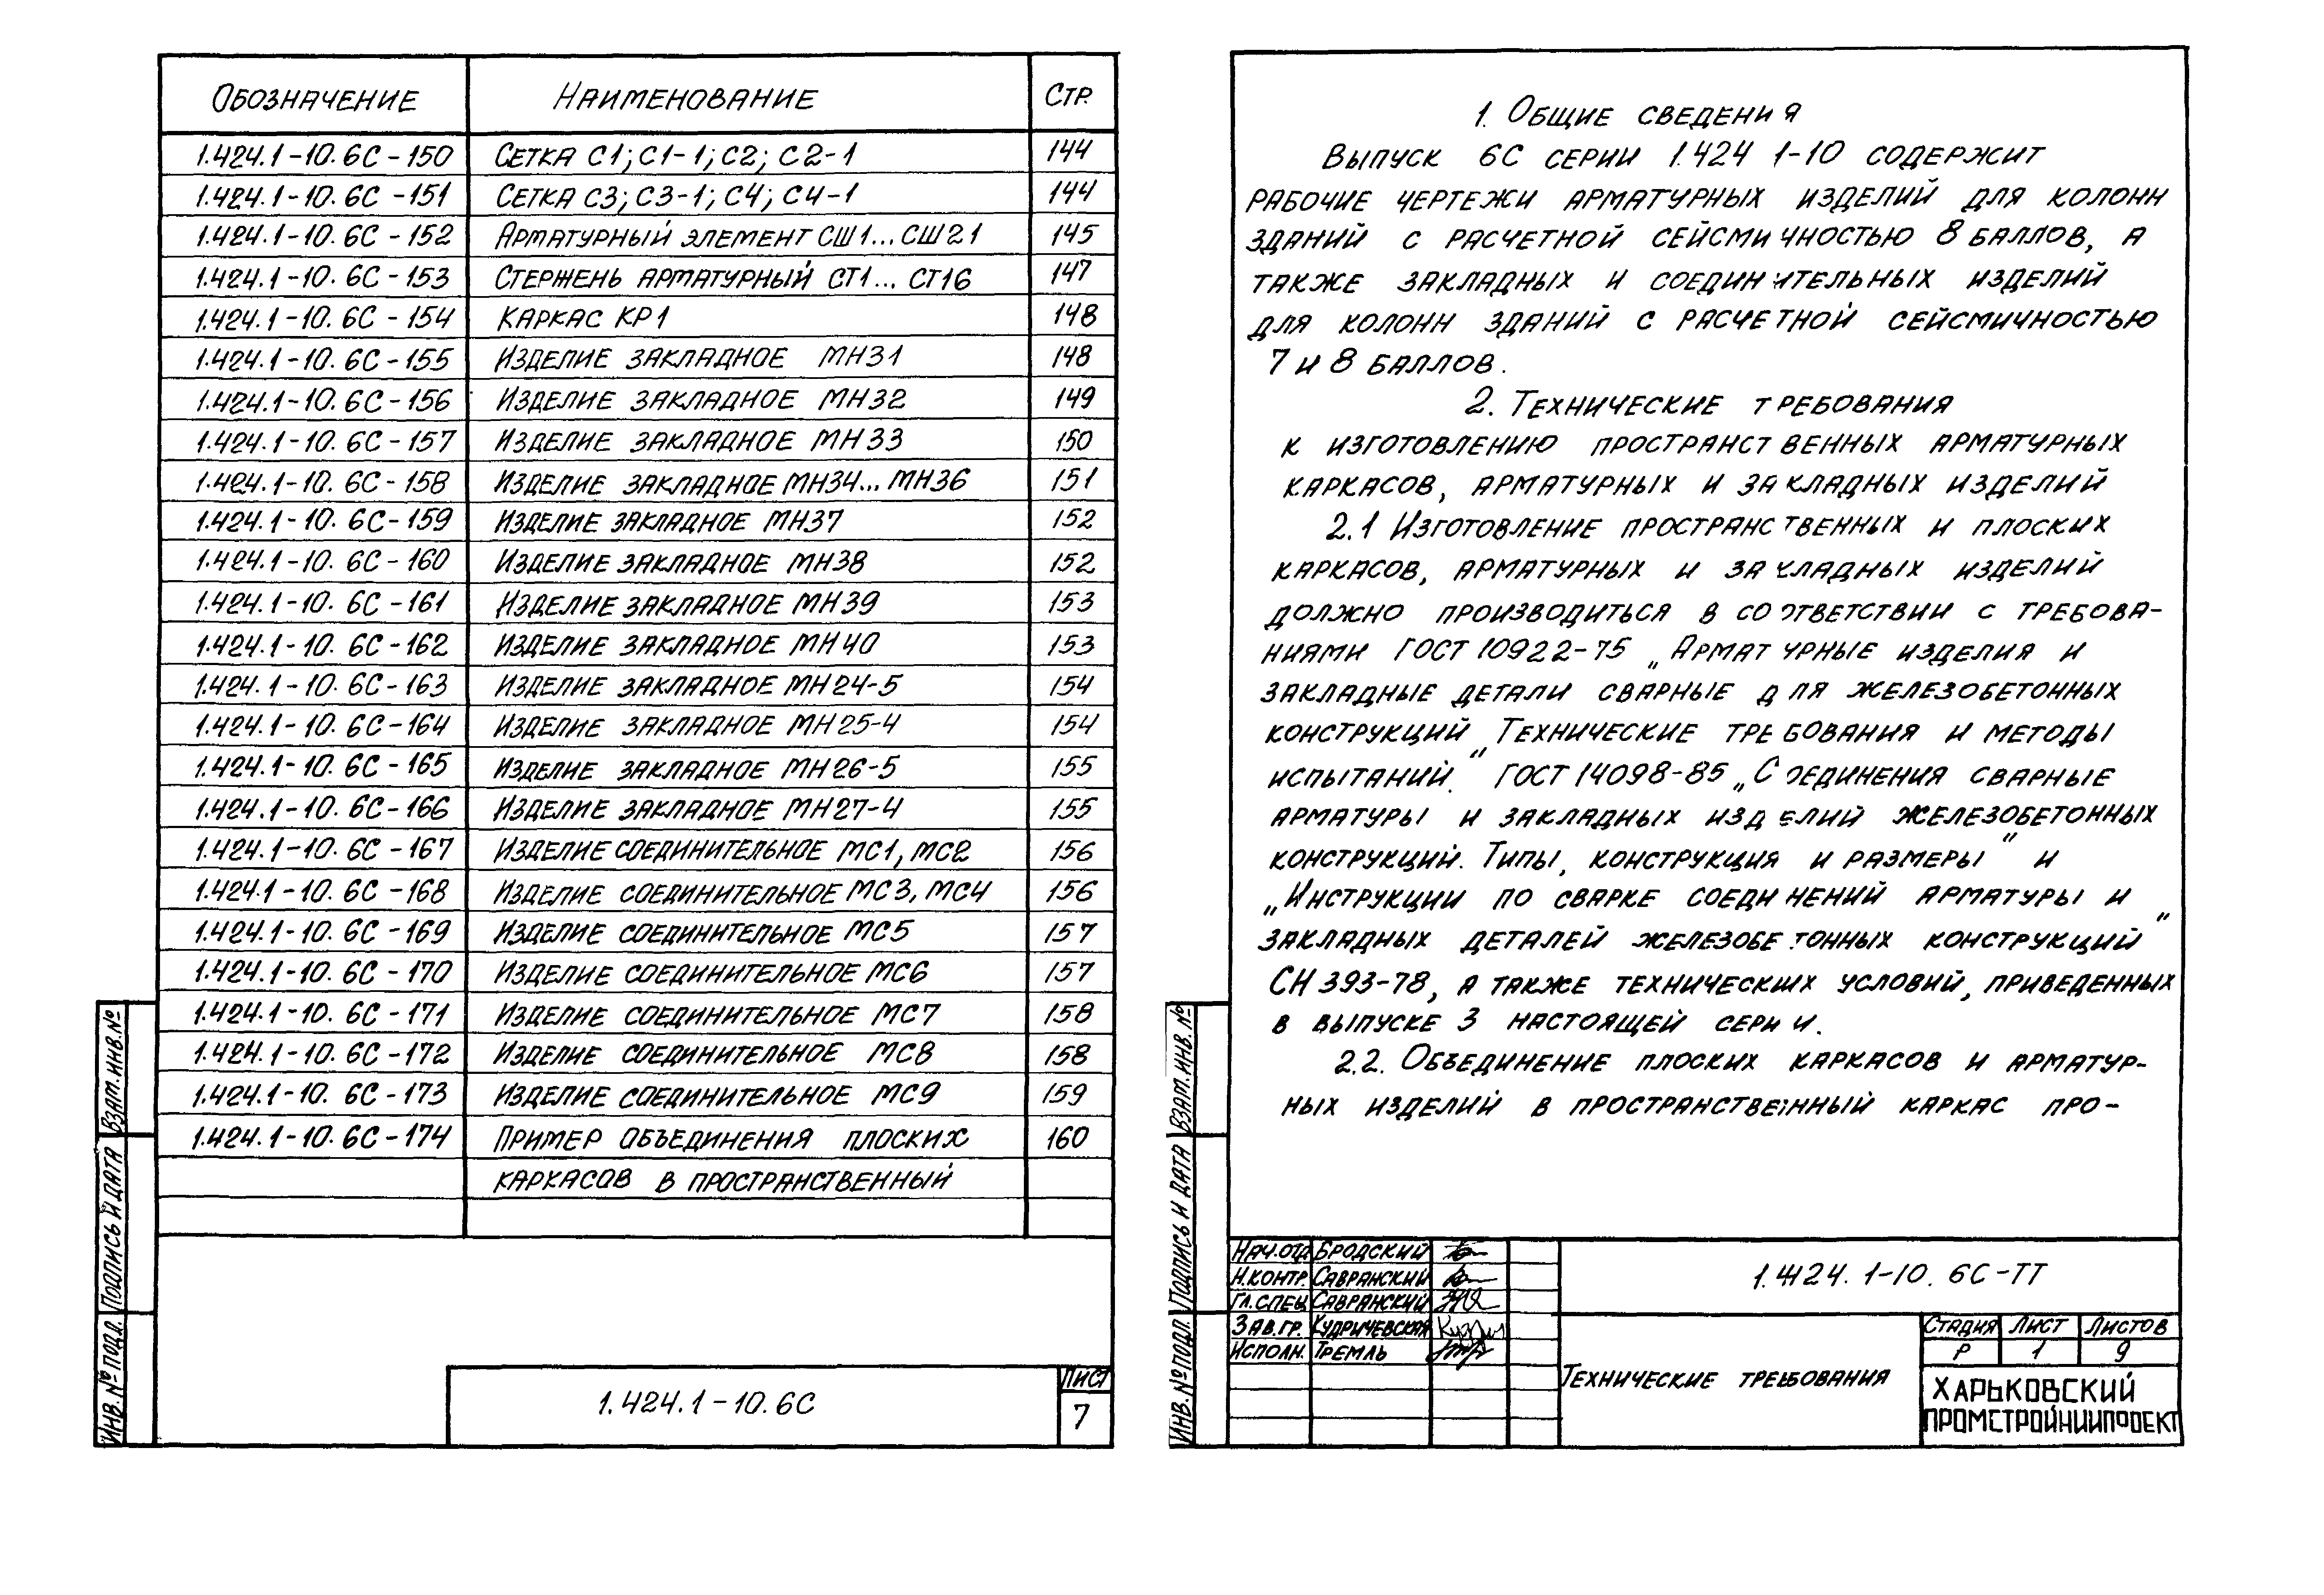 Обозначение Наименование Стр.
1.424.1-10.6С-150 Сетка С1; С1-1; С2; С2-1 144
1.424.1-10.6С-151 Сетка С3; С3-1; С4; С4-1 144
1.424.1-10.6С-152 Арматурный элемент СШ1...СШ21 145
1.424.1-10.6С-153 Стержень арматурный СТ1...СТ16 147
1.424.1-10.6С-154 Каркас КР1 148
1.424.1-10.6С-155 Изделие закладное МН31 148
1.424.1-10.6С-156 Изделие закладное МН32 149
1.424.1-10.6С-157 Изделие закладное МН33 150
1.424.1-10.6С-158 Изделие закладное МН34...МН36 151
1.424.1-10.6С-159 Изделие закладное МН37 152
1.424.1-10.6С-160 Изделие закладное МН38 152
1.424.1-10.6С-161 Изделие закладное МН39 153
1.424.1-10.6С-162 Изделие закладное МН40 153
1.424.1-10.6С-163 Изделие закладное МН24-5 154
1.424.1-10.6С-164 Изделие закладное МН25-4 154
1.424.1-10.6С-165 Изделие закладное МН26-5 155
1.424.1-10.6С-166 Изделие закладное МН27-4 155
1.424.1-10.6С-167 Изделие соединительное МС1, МС2 156
1.424.1-10.6С-168 Изделие соединительное МС3, МС4 156
1.424.1-10.6С-169 Изделие соединительное МС5 157
1.424.1-10.6С-170 Изделие соединительное МС6 157
1.424.1-10.6С-171 Изделие соединительное МС7 158
1.424.1-10.6С-172 Изделие соединительное МС8 158
1.424.1-10.6С-173 Изделие соединительное МС9 159
1.424.1-10.6С-174 Пример объединения плоских 160
каркасов в пространственный
Взам. инв. №
Подпись и дата
Инв. № подл.
1.424.1-10.6С
Лист
7
1. Общие сведения
Выпуск 6С серии 1.424 1-10 содержит
рабочие чертежи арматурных изделий для колонн
зданий с расчетной сейсмичностью 8 баллов, а
также закладных и соединительных изделий
для колонн зданий с расчетной сейсмичностью
7 и 8 баллов.
2. Технические требования
к изготовлению пространственных арматурных
каркасов, арматурных и закладных изделий
2.1 Изготовление пространственных и плоских
каркасов, арматурных и закладных изделий
должно производиться в соответствии с требова-
ниями ГОСТ 10922-75 „Арматурные изделия и
закладные детали сварные для железобетонных
конструкций Технические требования и методы
испытаний." ГОСТ 14098-85 „Соединения сварные
арматуры и закладных изделий железобетонных
конструкций. Типы, конструкция и размеры" и
„Инструкции по сварке соединений арматуры и
закладных деталей железобетонных конструкций"
СН 393-78, а также технических условий, приведенных
в выпуске 3 настоящей серии.
2.2. Объединение плоских каркасов и арматур-
ных изделий в пространственный каркас про-
Взам. инв. №
Подпись и дата
Инв. № подл.
Нач. отд Бродский
Н.контр. Савранский
Гл. спец Савранский
Зав. гр. Кудричевская
Исполн. Тремль
1.424.1-10.6С-ТТ
Технические требования
Стадия Лист Листов
Р 1 9
Харьковский
ПРОМСТРОЙНИИПРОЕКТ